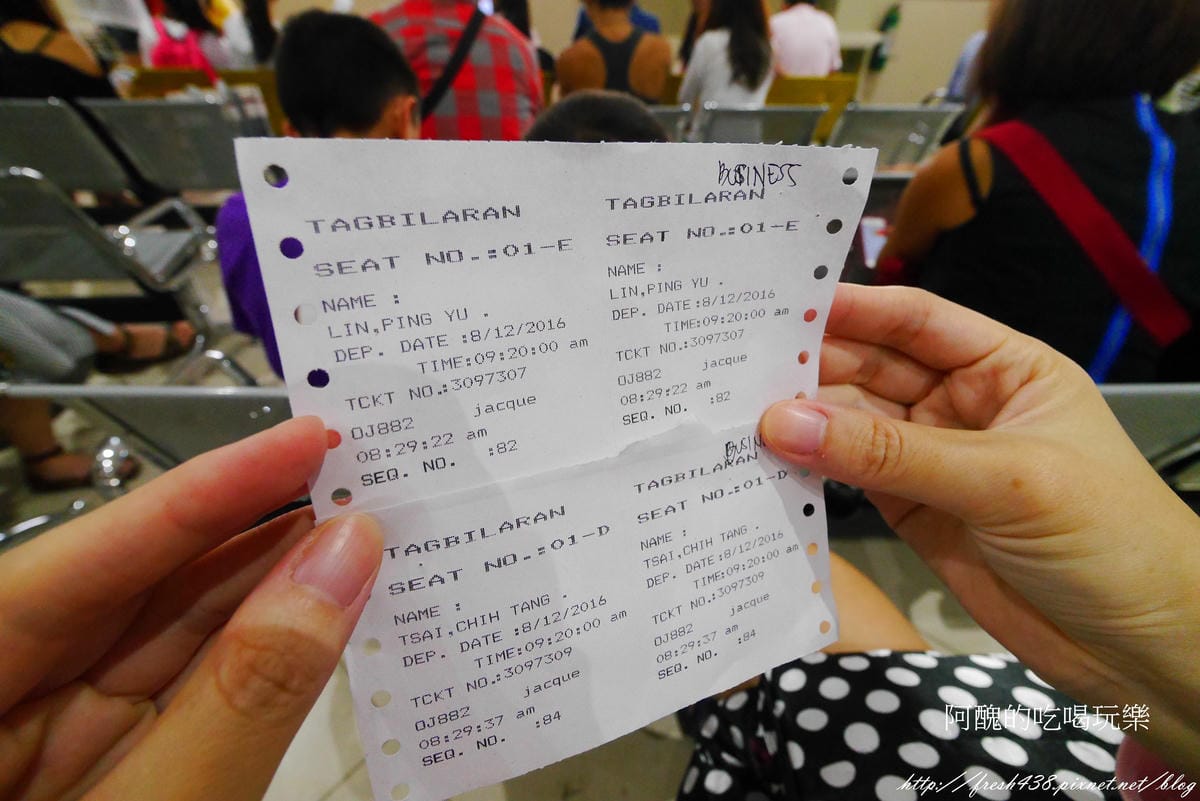 TAGBILARAN
SEAT NO.:01-E
NAME :
LIN,PING YU .
DEP. DATE :8/12/2016
TIME:09:20:00 am
TCKT NO.:3097307
OJ882 jacque
08:29:22 am
SEQ. NO. :82
BUSINESS
TAGBILARAN
SEAT NO.:01-E
NAME :
LIN,PING YU .
DEP. DATE :8/12/2016
TIME:09:20:00 am
TCKT NO.:3097307
OJ882 jacque
08:29:22 am
SEQ. NO. :82
TAGBILARAN
SEAT NO.:01-D
NAME :
TSAI,CHIH TANG .
DEP. DATE :8/12/2016
TIME:09:20:00 am
TCKT NO.:3097309
OJ882 jacque
08:29:37 am
SEQ. NO. :84
BUSIN
TAGBILARAN
SEAT NO.:01-D
NAME :
TSAI,CHIH TANG .
DEP. DATE :8/12/2016
TIME:09:20:00 am
TCKT NO.:3097309
OJ882 jacque
08:29:37 am
SEQ. NO. :84
阿醜的吃喝玩樂
http://fresh438.pixnet.net/blog